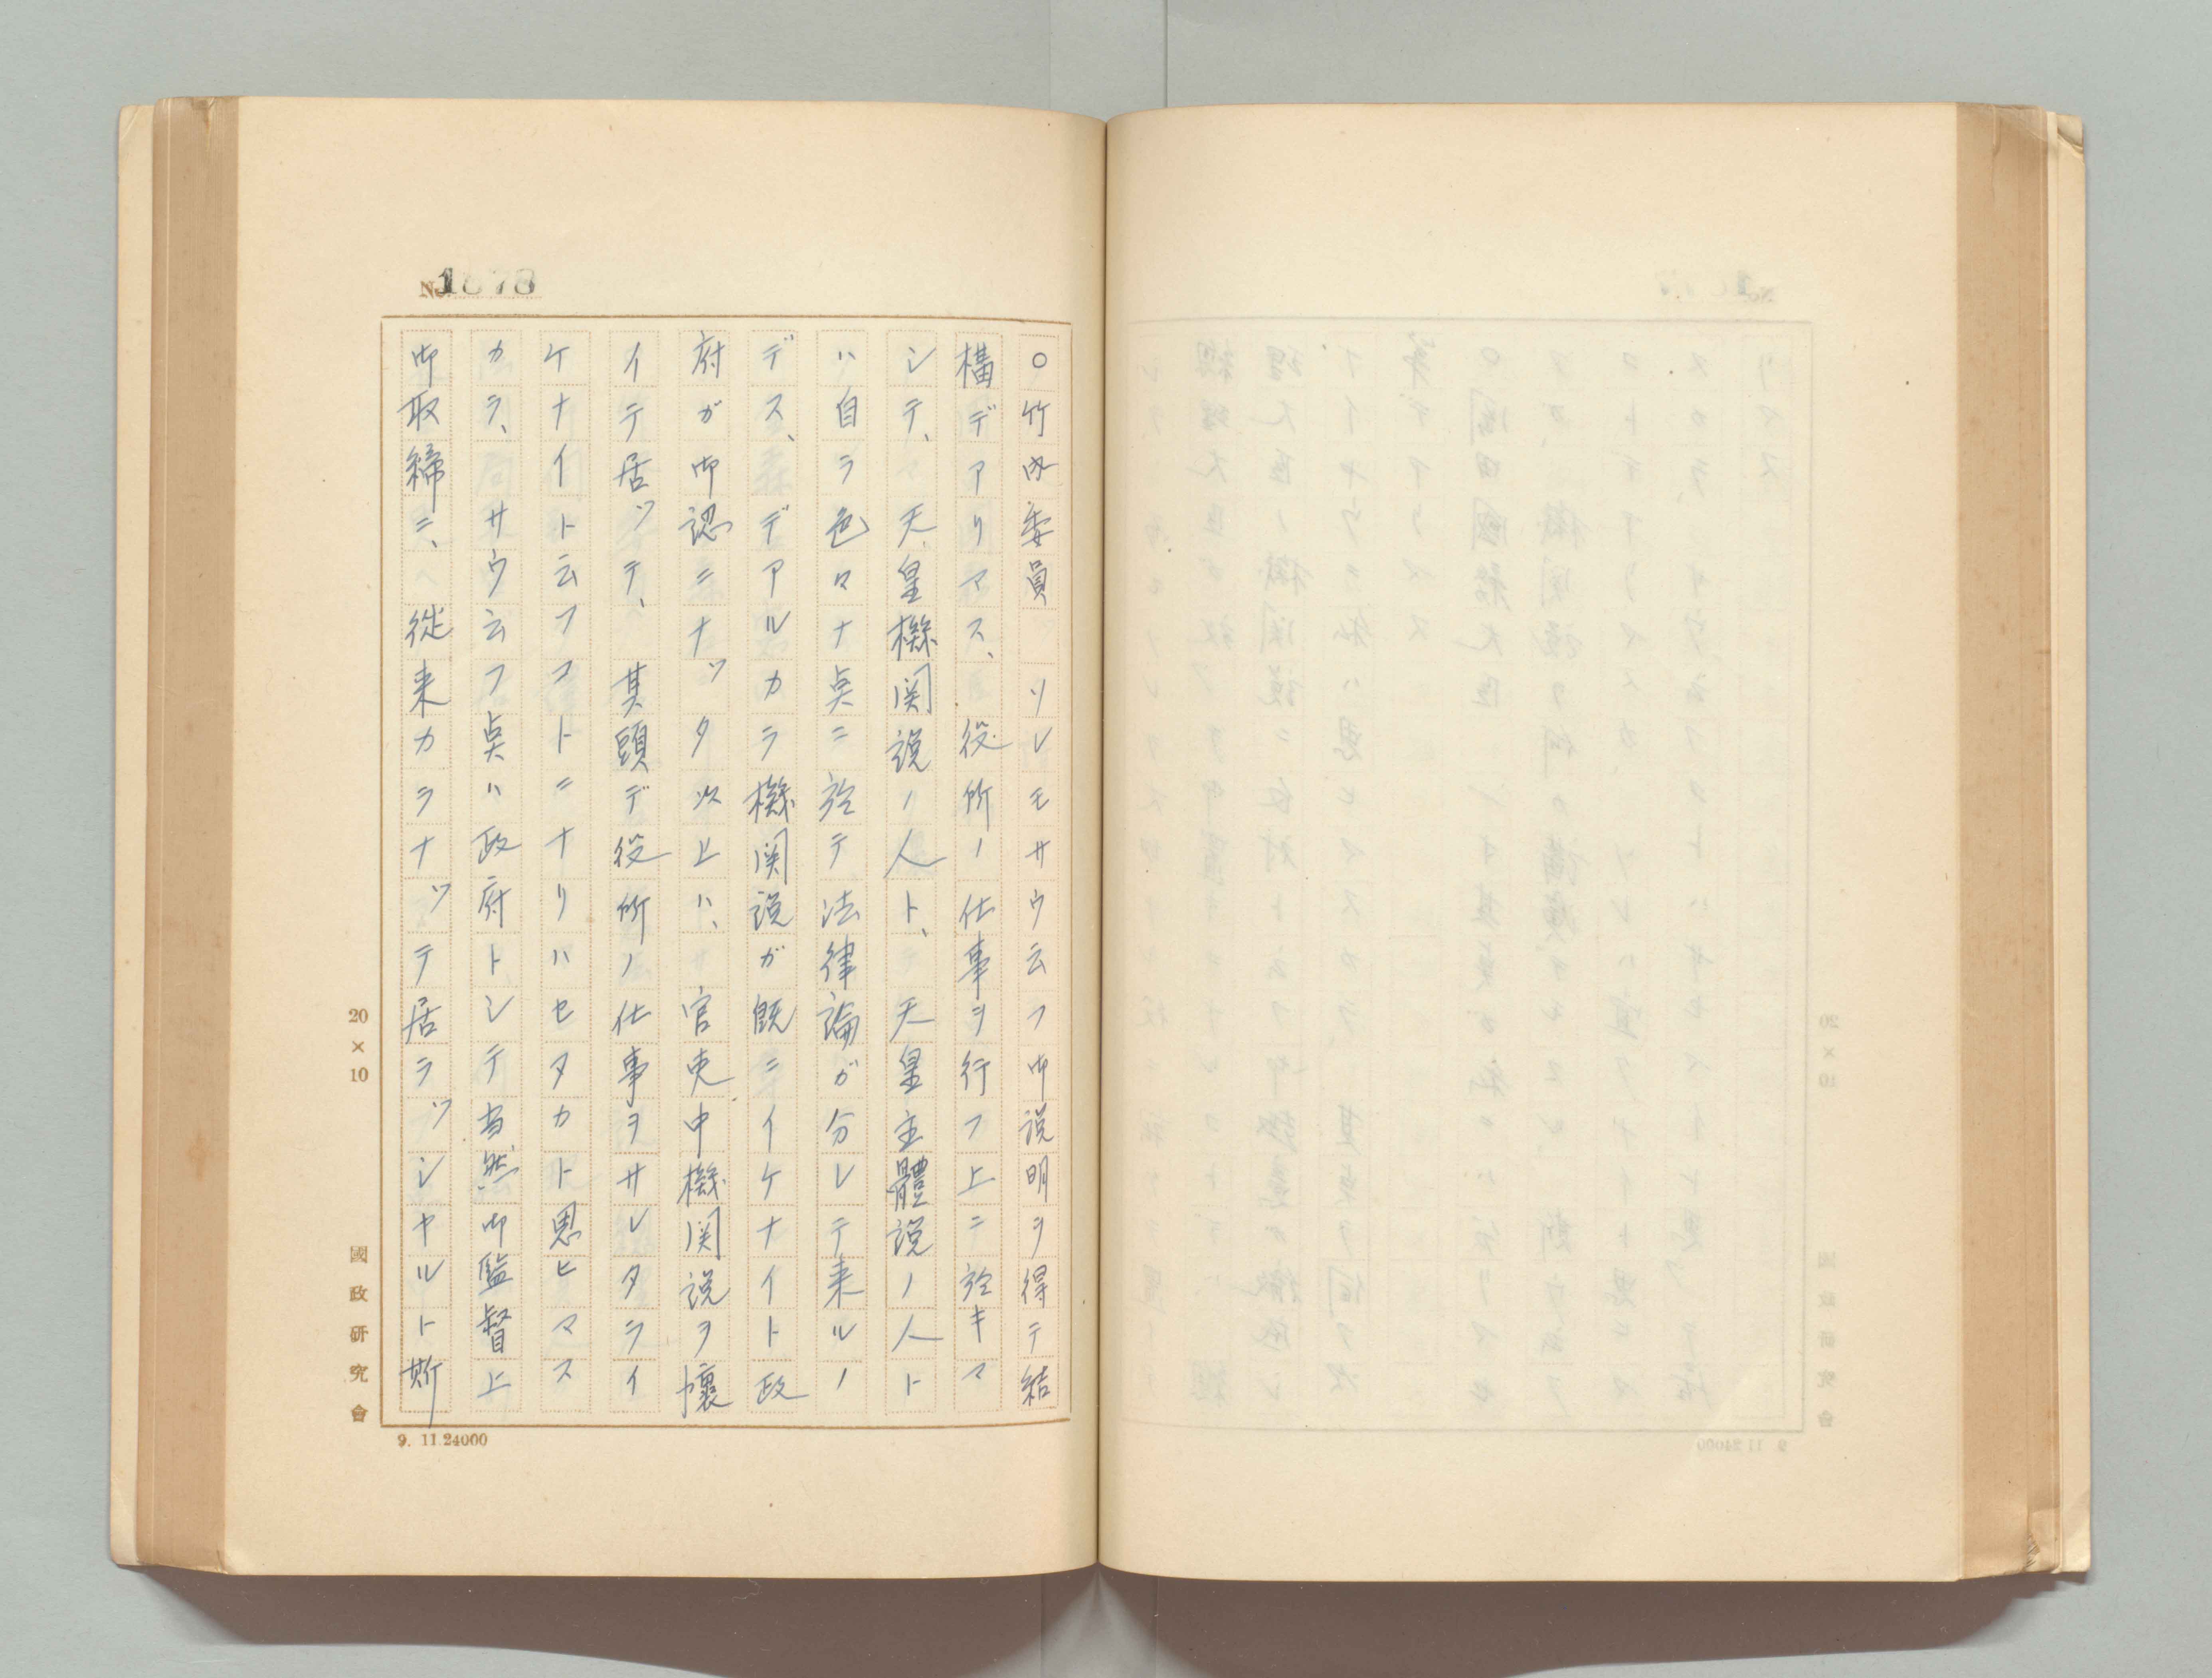 No. 1878
〇竹内委員　ソレモサウ云フ御説明ヲ得テ結
構デアリマス、役所ノ仕事ヲ行フ上ニ於キマ
シテ、天皇機関説ノ人ト、天皇主體説ノ人ト
ハ自ラ色々ナ点ニ於テ法律論ガ分レテ来ルノ
デス、デアルカラ機関説ガ既ニイケナイト政
府ガ御認ニナッタ以上ハ、官吏中機関説ヲ懐
イテ居ッテ、其頭デ役所ノ仕事ヲサレタライ
ケナイト云フコトニナリハセヌカト思ヒマス
カラ、サウ云フ点ハ政府トシテ当然御監督上
御取締ニ、従来カラナッテ居ラッシヤルト斯
20×10
國政研究會
9. 11.24000